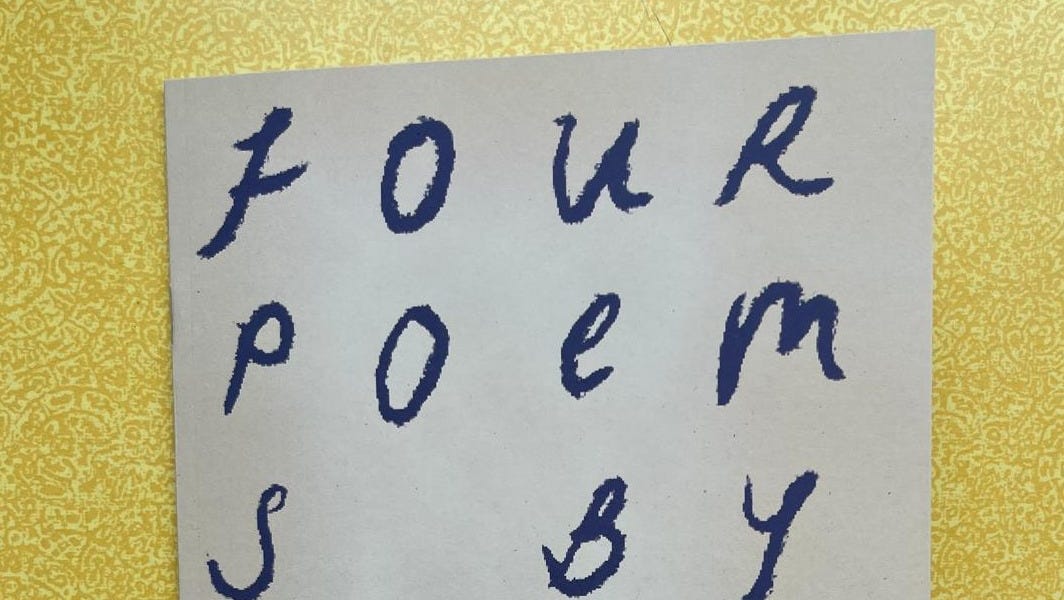 FOUR
POem
S BY